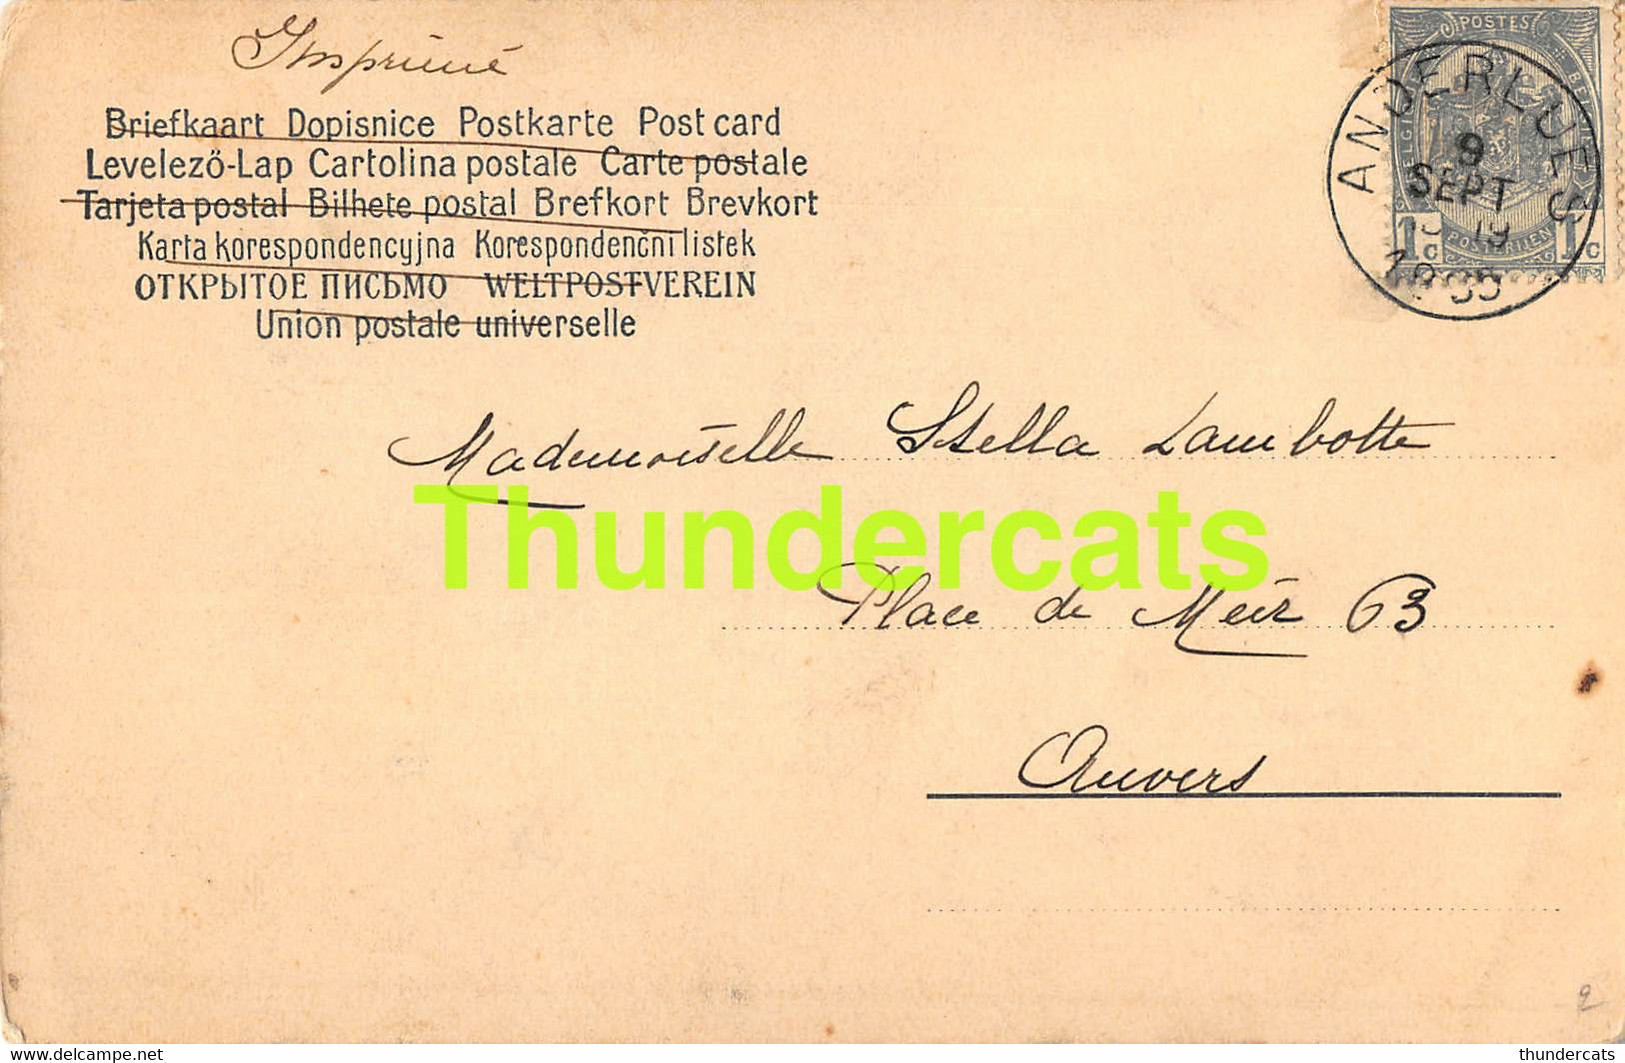 Imprimé
Briefkaart Dopisnice Postkarte Post card
Levelező-Lap Cartolina postale Carte postale
Tarjeta postal Bilhete postal Brefkort Brevkort
Karta korespondencyjna Korespondenční listek
ОТКРЫТОЕ ПИСЬМО WELTPOSTVEREIN
Union postale universelle
POSTES
BELGIQUE
1c POSTERIJEN 1c
ANDERLUES
9
SEPT
19
Mademoiselle Stella Lambotte
Thundercats
Place de Meir 63
Anvers
thundercats